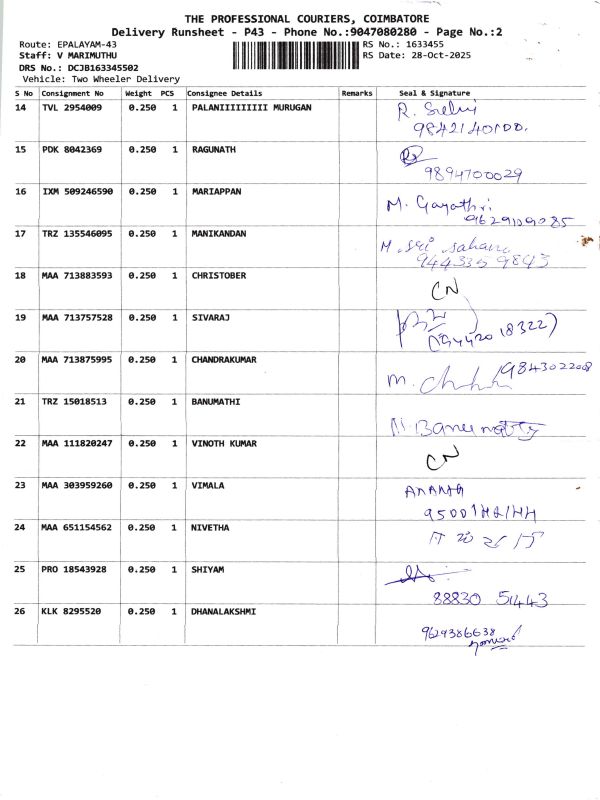 THE PROFESSIONAL COURIERS, COIMBATORE
Delivery Runsheet - P43 - Phone No.:9047080280 - Page No.:2
Route: EPALAYAM-43 RS No.: 1633455
Staff: V MARIMUTHU RS Date: 28-Oct-2025
DRS No.: DCJB163345502
Vehicle: Two Wheeler Delivery
S No Consignment No Weight PCS Consignee Details Remarks Seal & Signature
14 TVL 2954009 0.250 1 PALANIIIIIIIII MURUGAN R. Selvi
9842140100.
15 PDK 8042369 0.250 1 RAGUNATH
9894700029
16 IXM 509246590 0.250 1 MARIAPPAN M. Gayathri
9629109085
17 TRZ 135546095 0.250 1 MANIKANDAN M. Sri
9443359843
18 MAA 713883593 0.250 1 CHRISTOBER CN
19 MAA 713757528 0.250 1 SIVARAJ
(9442018322)
20 MAA 713875995 0.250 1 CHANDRAKUMAR 9843022008
M.
21 TRZ 15018513 0.250 1 BANUMATHI N. Banumathy
22 MAA 111820247 0.250 1 VINOTH KUMAR CN
23 MAA 303959260 0.250 1 VIMALA
24 MAA 651154562 0.250 1 NIVETHA
25 PRO 18543928 0.250 1 SHIYAM
88830 51443
26 KLK 8295520 0.250 1 DHANALAKSHMI
9629386638